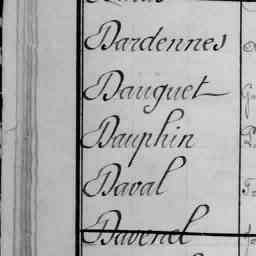 Dardennes
Dauguet
Dauphin
Daval
Davenel